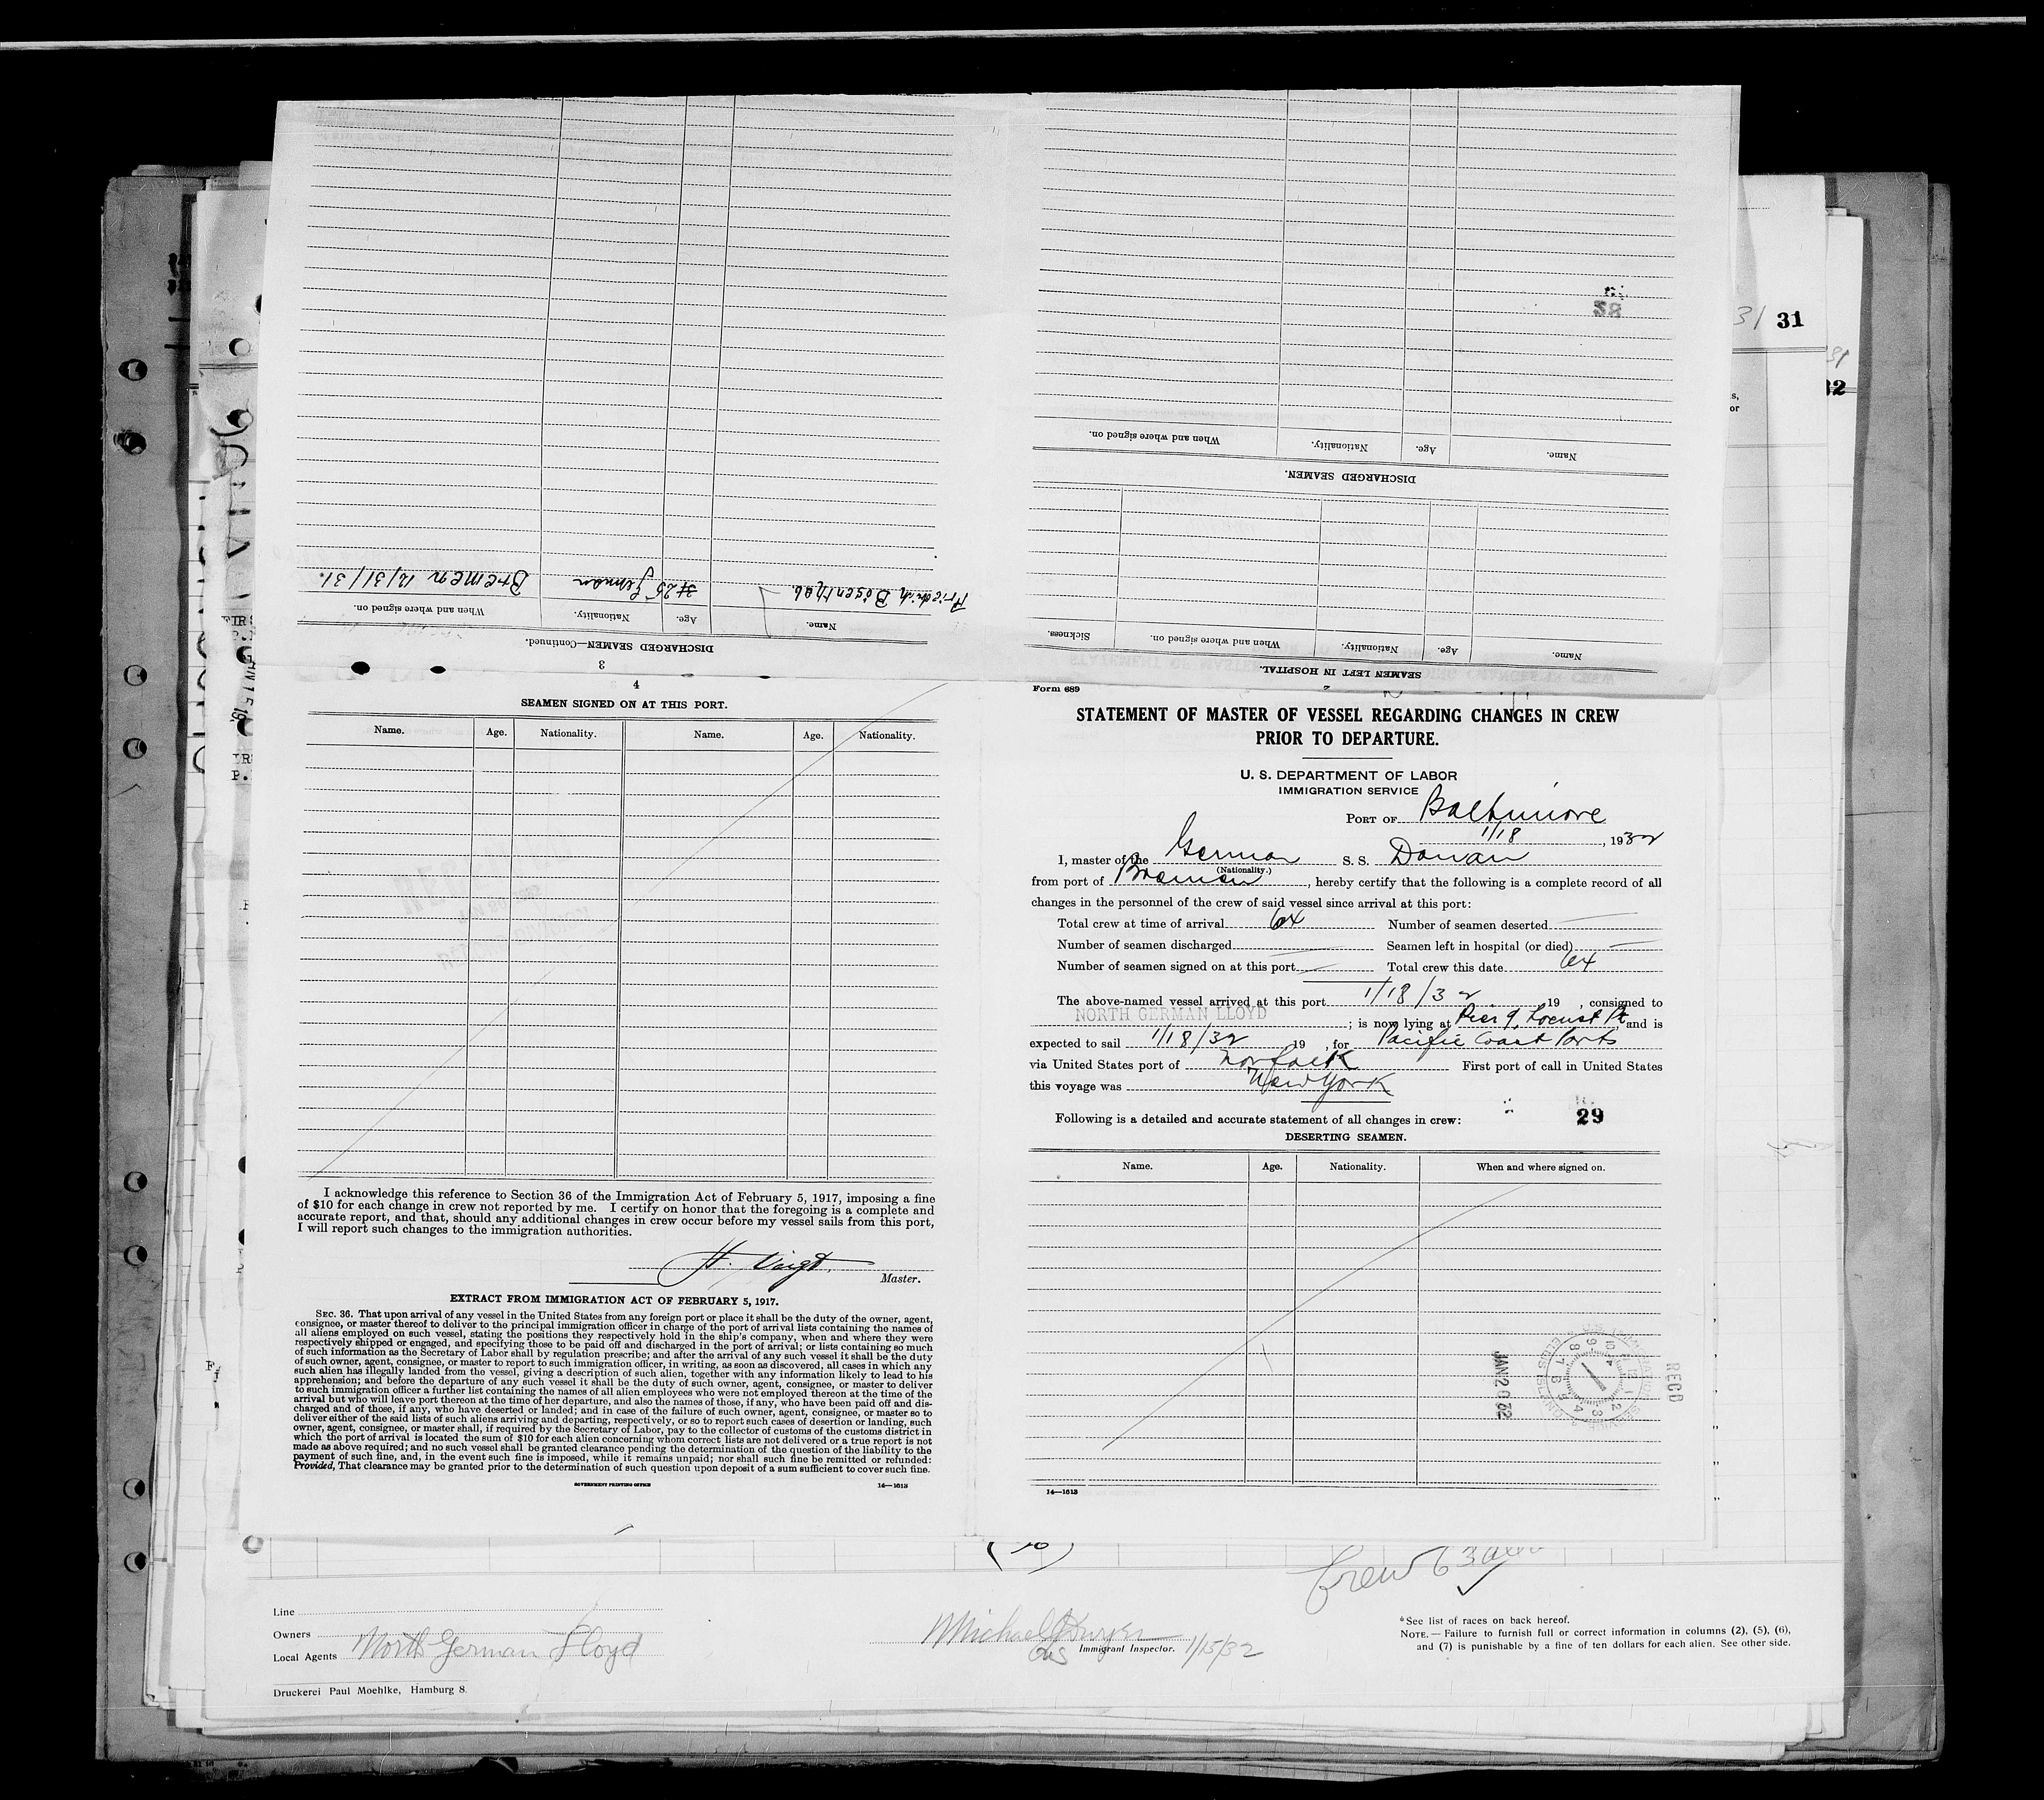 DISCHARGED SEAMEN—Continued.
3
Name.
Age.
Nationality.
When and where signed on.
25
German
Bremen 12/31/31.
SEAMEN LEFT IN HOSPITAL.
2
Name.
Age.
Nationality.
When and where signed on.
Sickness.
DISCHARGED SEAMEN.
Name.
Age.
Nationality.
When and where signed on.
31 31
32
4
SEAMEN SIGNED ON AT THIS PORT.
Name.
Age.
Nationality.
Name.
Age.
Nationality.
I acknowledge this reference to Section 36 of the Immigration Act of February 5, 1917, imposing a fine
of $10 for each change in crew not reported by me. I certify on honor that the foregoing is a complete and
accurate report, and that, should any additional changes in crew occur before my vessel sails from this port,
I will report such changes to the immigration authorities.
H. Voigt.
Master.
EXTRACT FROM IMMIGRATION ACT OF FEBRUARY 5, 1917.
SEC. 36. That upon arrival of any vessel in the United States from any foreign port or place it shall be the duty of the owner, agent,
consignee, or master thereof to deliver to the principal immigration officer in charge of the port of arrival lists containing the names of
all aliens employed on such vessel, stating the positions they respectively hold in the ship's company, when and where they were
respectively shipped or engaged, and specifying those to be paid off and discharged in the port of arrival; or lists containing so much
of such information as the Secretary of Labor shall by regulation prescribe; and after the arrival of any such vessel it shall be the duty
of such owner, agent, consignee, or master to report to such immigration officer, in writing, as soon as discovered, all cases in which any
such alien has illegally landed from the vessel, giving a description of such alien, together with any information likely to lead to his
apprehension; and before the departure of any such vessel it shall be the duty of such owner, agent, consignee, or master to deliver
to such immigration officer a further list containing the names of all alien employees who were not employed thereon at the time of the
arrival but who will leave port thereon at the time of her departure, and also the names of those, if any, who have been paid off and dis-
charged and of those, if any, who have deserted or landed; and in case of the failure of such owner, agent, consignee, or master so to
deliver either of the said lists of such aliens arriving and departing, respectively, or so to report such cases of desertion or landing, such
owner, agent, consignee, or master shall, if required by the Secretary of Labor, pay to the collector of customs of the customs district in
which the port of arrival is located the sum of $10 for each alien concerning whom correct lists are not delivered or a true report is not
made as above required; and no such vessel shall be granted clearance pending the determination of the question of the liability to the
payment of such fine, and, in the event such fine is imposed, while it remains unpaid; nor shall such fine be remitted or refunded:
Provided, That clearance may be granted prior to the determination of such question upon deposit of a sum sufficient to cover such fine.
GOVERNMENT PRINTING OFFICE
14—1613
Form 689
STATEMENT OF MASTER OF VESSEL REGARDING CHANGES IN CREW
PRIOR TO DEPARTURE.
U. S. DEPARTMENT OF LABOR
IMMIGRATION SERVICE
PORT OF Baltimore
1/18, 1932
I, master of the German S. S. Donau
(Nationality.)
from port of Bremen, hereby certify that the following is a complete record of all
changes in the personnel of the crew of said vessel since arrival at this port:
Total crew at time of arrival 64 Number of seamen deserted
Number of seamen discharged Seamen left in hospital (or died)
Number of seamen signed on at this port Total crew this date 64
The above-named vessel arrived at this port 1/18/32 19 , consigned to
NORTH GERMAN LLOYD ; is now lying at Pier 9, Locust Pt and is
expected to sail 1/18/32 19 , for Pacific Coast Ports
via United States port of Norfolk First port of call in United States
this voyage was New York
Following is a detailed and accurate statement of all changes in crew:
29
DESERTING SEAMEN.
Name.
Age.
Nationality.
When and where signed on.
JAN 20 32
RECD
14—1613
Crew 63
Line
Owners
Local Agents North German Lloyd
Druckerei Paul Moehlke, Hamburg 8.
Michael Dwyer
Immigrant Inspector. 1/15/32
*See list of races on back hereof.
NOTE.— Failure to furnish full or correct information in columns (2), (5), (6),
and (7) is punishable by a fine of ten dollars for each alien. See other side.